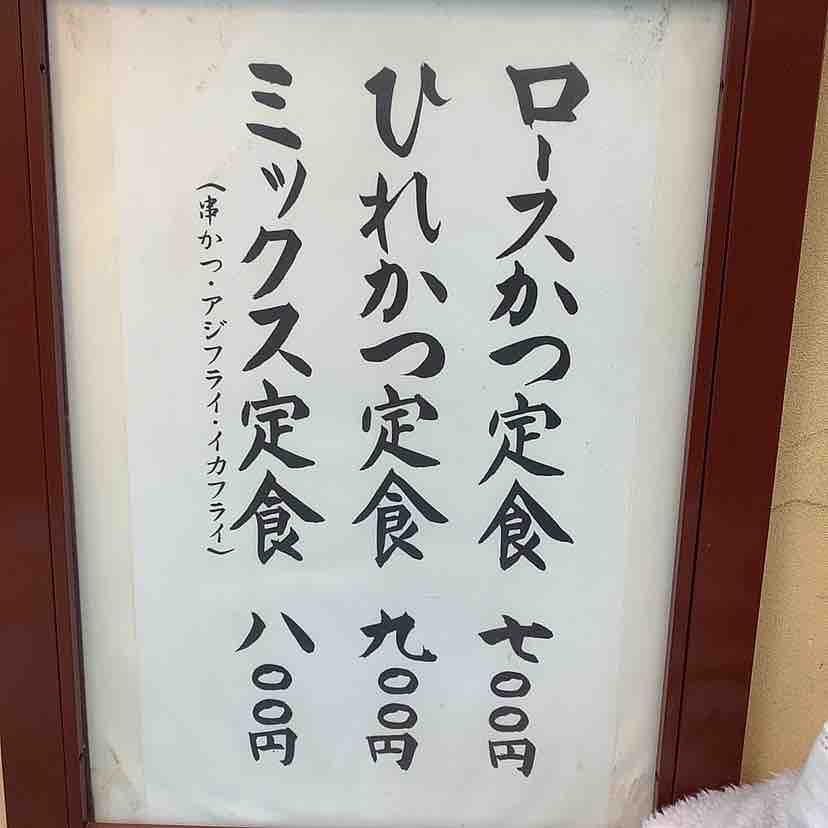 ロースかつ定食 七〇〇円
ひれかつ定食 九〇〇円
ミックス定食 八〇〇円
(串かつ・アジフライ・イカフライ)